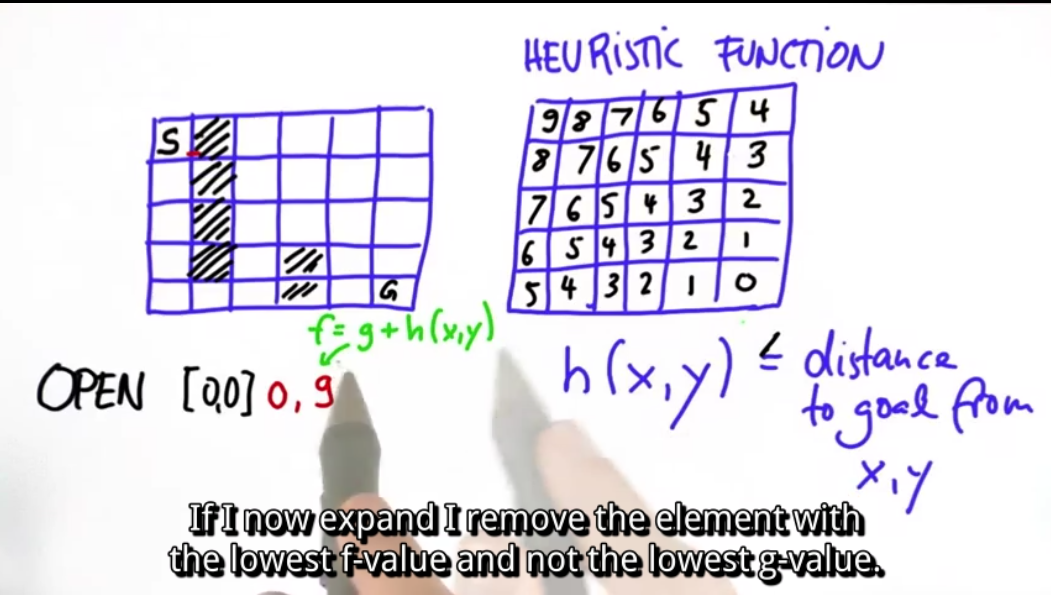 HEURISTIC FUNCTION
S
G
9 8 7 6 5 4
8 7 6 5 4 3
7 6 5 4 3 2
6 5 4 3 2 1
5 4 3 2 1 0
f = g + h(x,y)
OPEN [0,0] 0, 9
h(x,y) ≤ distance
to goal from
x,y
If I now expand I remove the element with
the lowest f-value and not the lowest g-value.